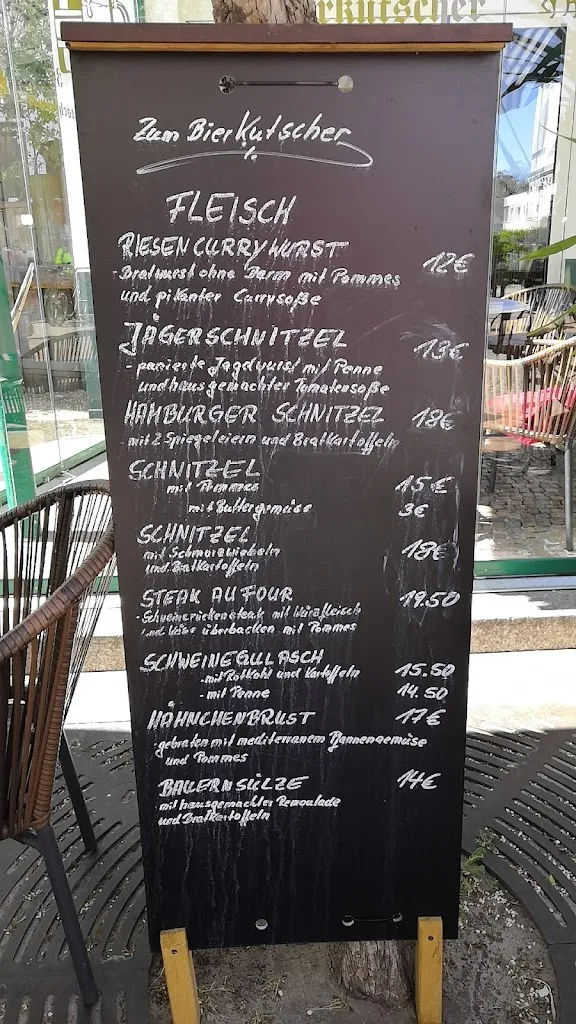 rkutscher
Zum Bierkutscher
FLEISCH
RIESENCURRYWURST 12€
-Bratwurst ohne Darm mit Pommes
und pikanter Currysoße
JÄGERSCHNITZEL 13€
- panierte Jagdwurst mit Penne
und hausgemachter Tomatensoße
HAMBURGER SCHNITZEL 18€
- mit 2 Spiegeleiern und Bratkartoffeln
SCHNITZEL
mit Pommes 15€
mit Buttergemüse 3€
SCHNITZEL
mit Schmorzwiebeln 18€
und Bratkartoffeln
STEAK AU FOUR 19.50
- Schweinerückensteak mit Würzfleisch
und Käse überbacken mit Pommes
SCHWEINEGULASCH
-mit Rotkohl und Kartoffeln 15.50
- mit Penne 14.50
HÄHNCHENBRUST 17€
-gebraten mit mediterranem Pfannengemüse
und Pommes
BAUERNSÜLZE 14€
mit hausgemachter Remoulade
und Bratkartoffeln